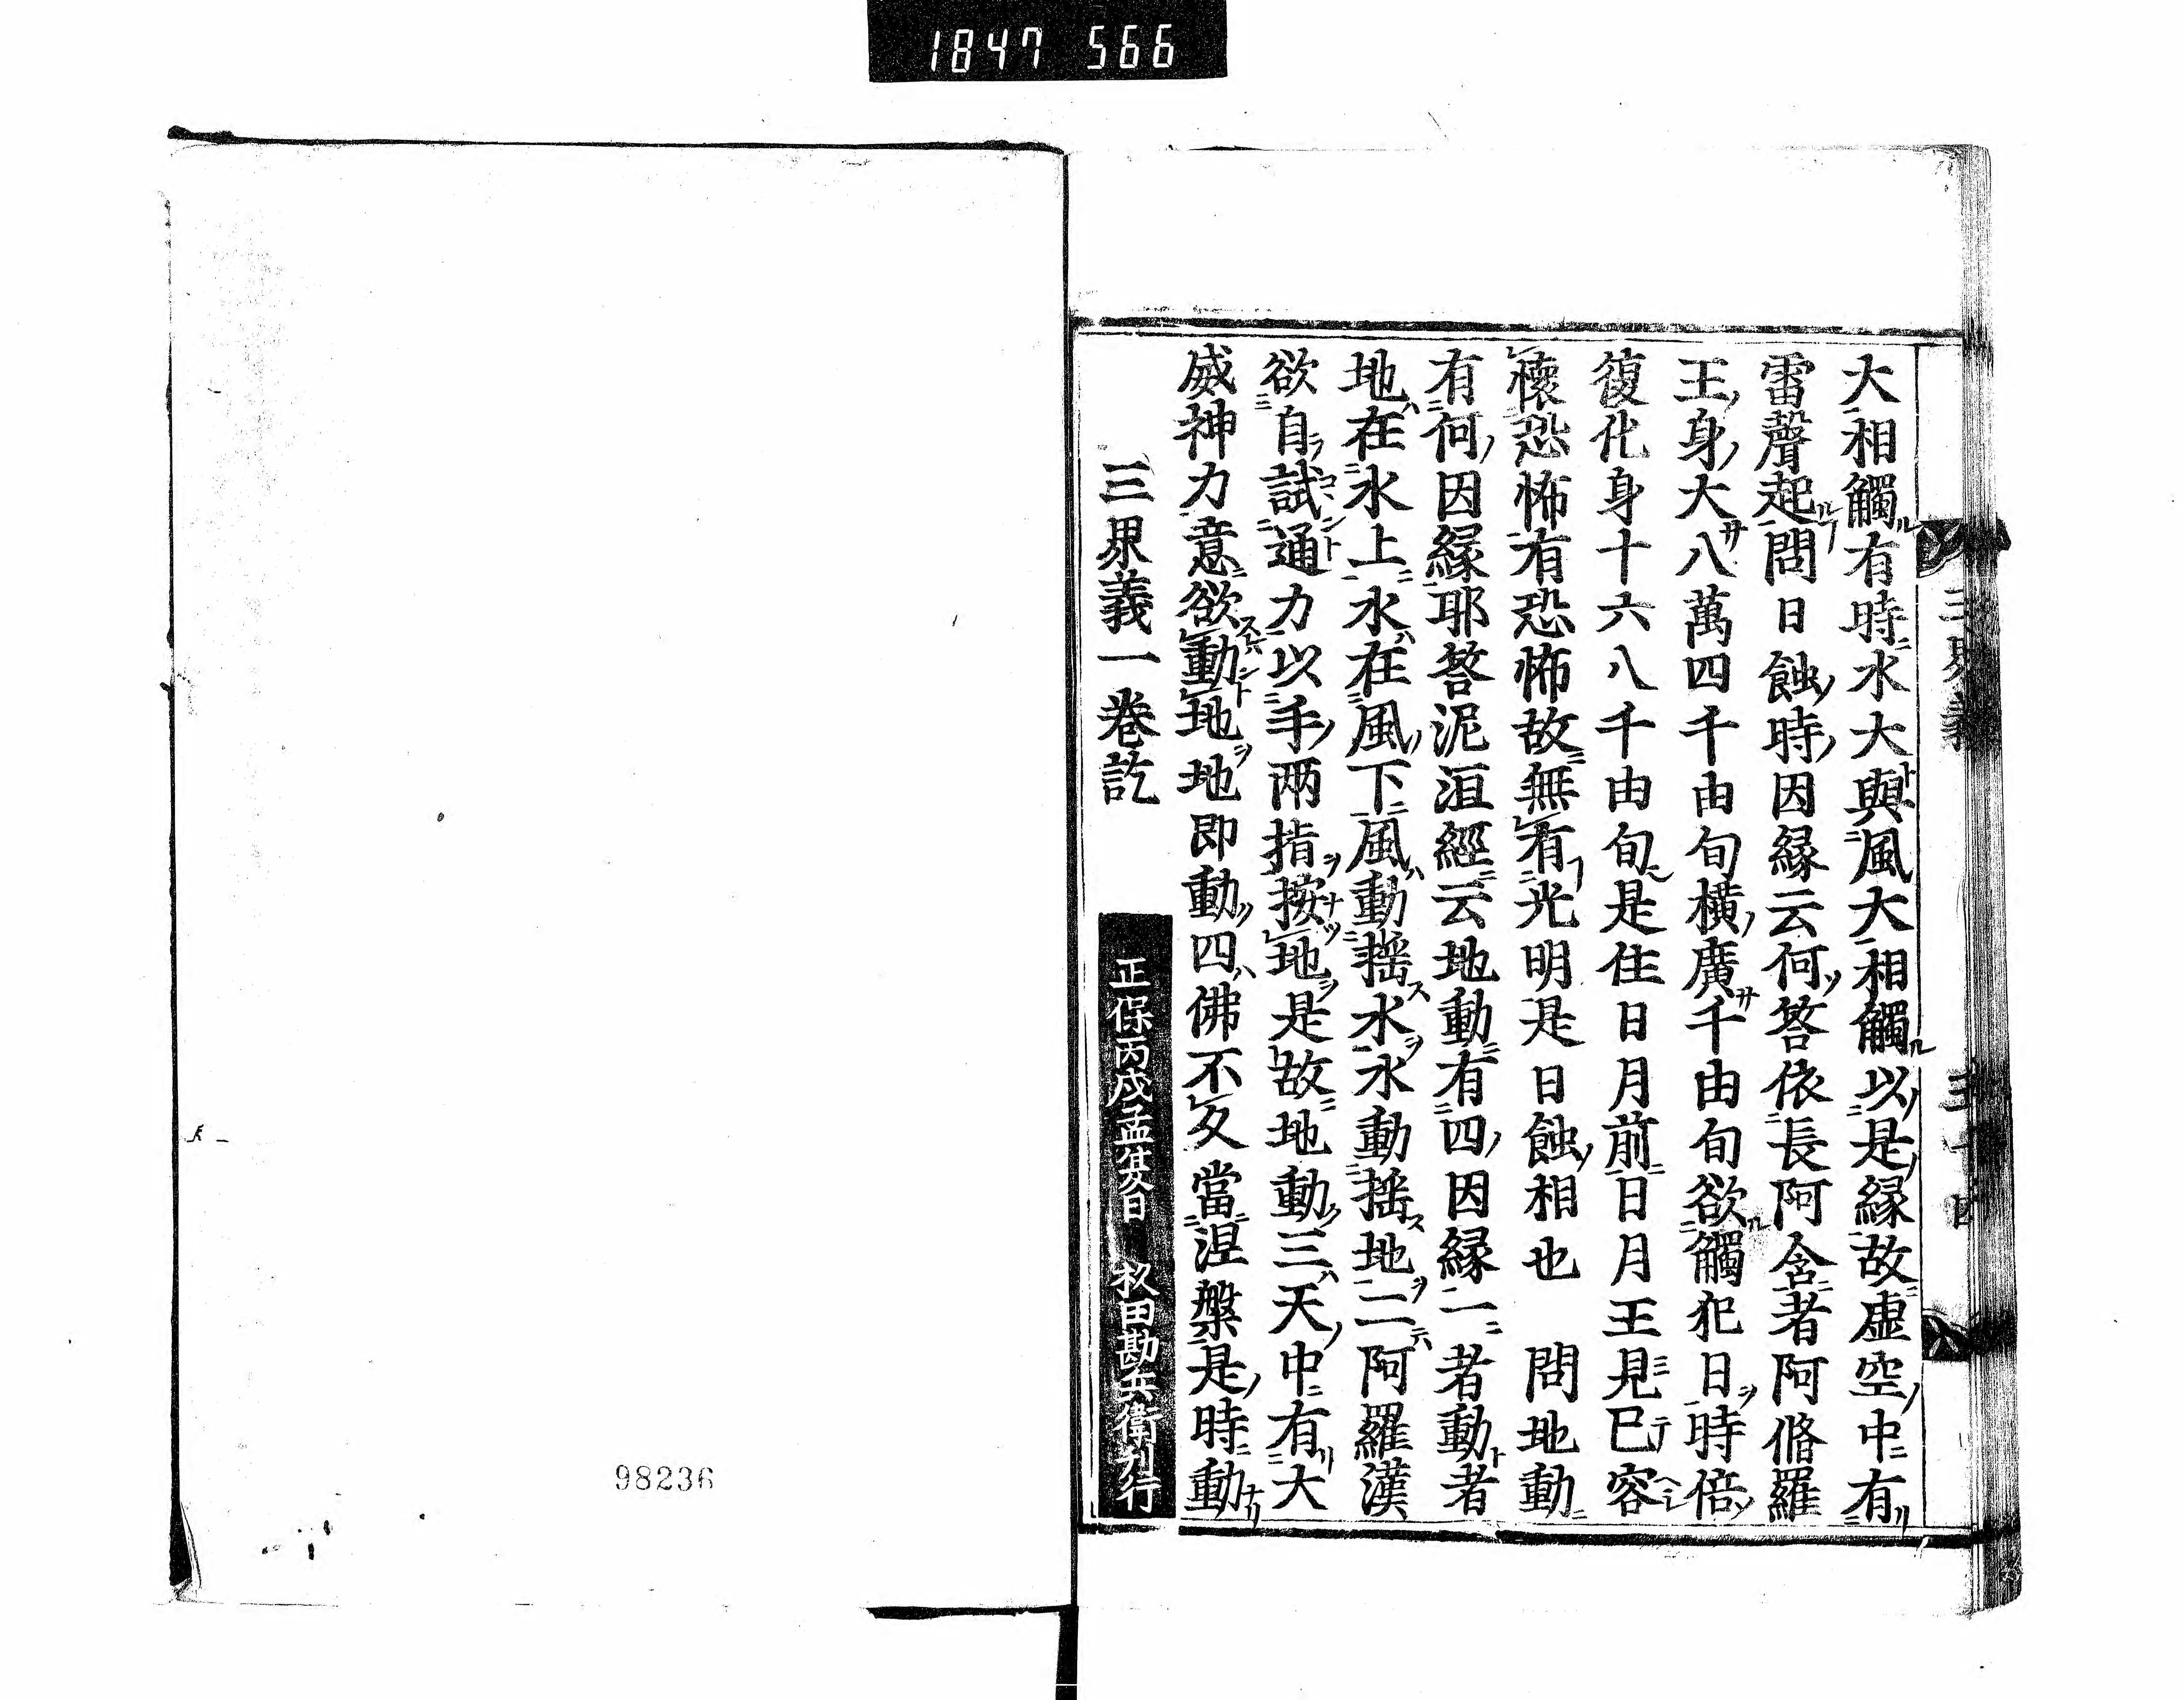 1847 566
大相觸有時水大與風大相觸以是縁故虚空中有
雷聲起問日蝕時因縁云何答依長阿含者阿脩羅
王身大八萬四千由旬横廣千由旬欲觸犯日時倍
復化身十六八千由旬是住日月前日月王見已容
懷恐怖有恐怖故無有光明是日蝕相也　問地動
有何因縁耶答泥洹經云地動有四因縁一者動者
地在水上水在風下風動揺水水動揺地二阿羅漢
欲自試通力以手两指按地是故地動三天中有大
威神力意欲動地地即動四佛不久當涅槃是時動
三界義一巻訖
正保丙戌孟夏日　杦田勘兵衛刊行
三界義
98236